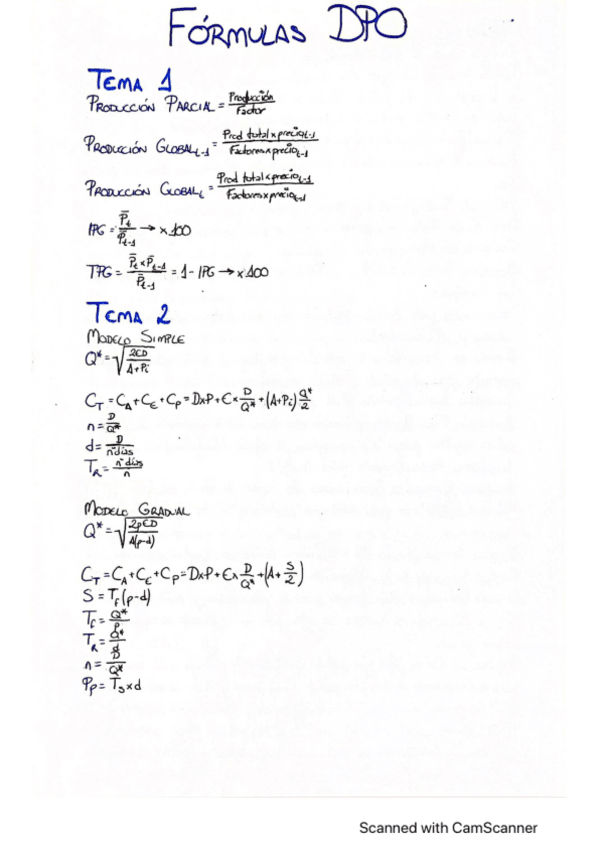 FÓRMULAS DPO
TEMA 1
PRODUCCIÓN PARCIAL = Producción / Factor
PRODUCCIÓN GLOBAL t-1 = Prod total x precio t-1 / Factores x precio t-1
PRODUCCIÓN GLOBAL t = Prod total x precio t-1 / Factores x precio t-1
IPG = P̄t / P̄t-1 → x 100
TPG = P̄t x P̄t-1 / P̄t-1 = 1 - IPG → x 100
TEMA 2
MODELO SIMPLE
Q* = √(2ED / A+Pi)
CT = CA + CE + CP = D x P + E x D/Q* + (A+Pi) Q*/2
n = D/Q*
d = D / nº días
TR = nº días / n
MODELO GRADUAL
Q* = √(2pED / A(p-d))
CT = CA + CE + CP = D x P + E x D/Q* + (A + S/2)
S = Tf (p-d)
Tf = Q*/p
TR = Q*/d
n = D/Q*
Pp = Ts x d
Scanned with CamScanner